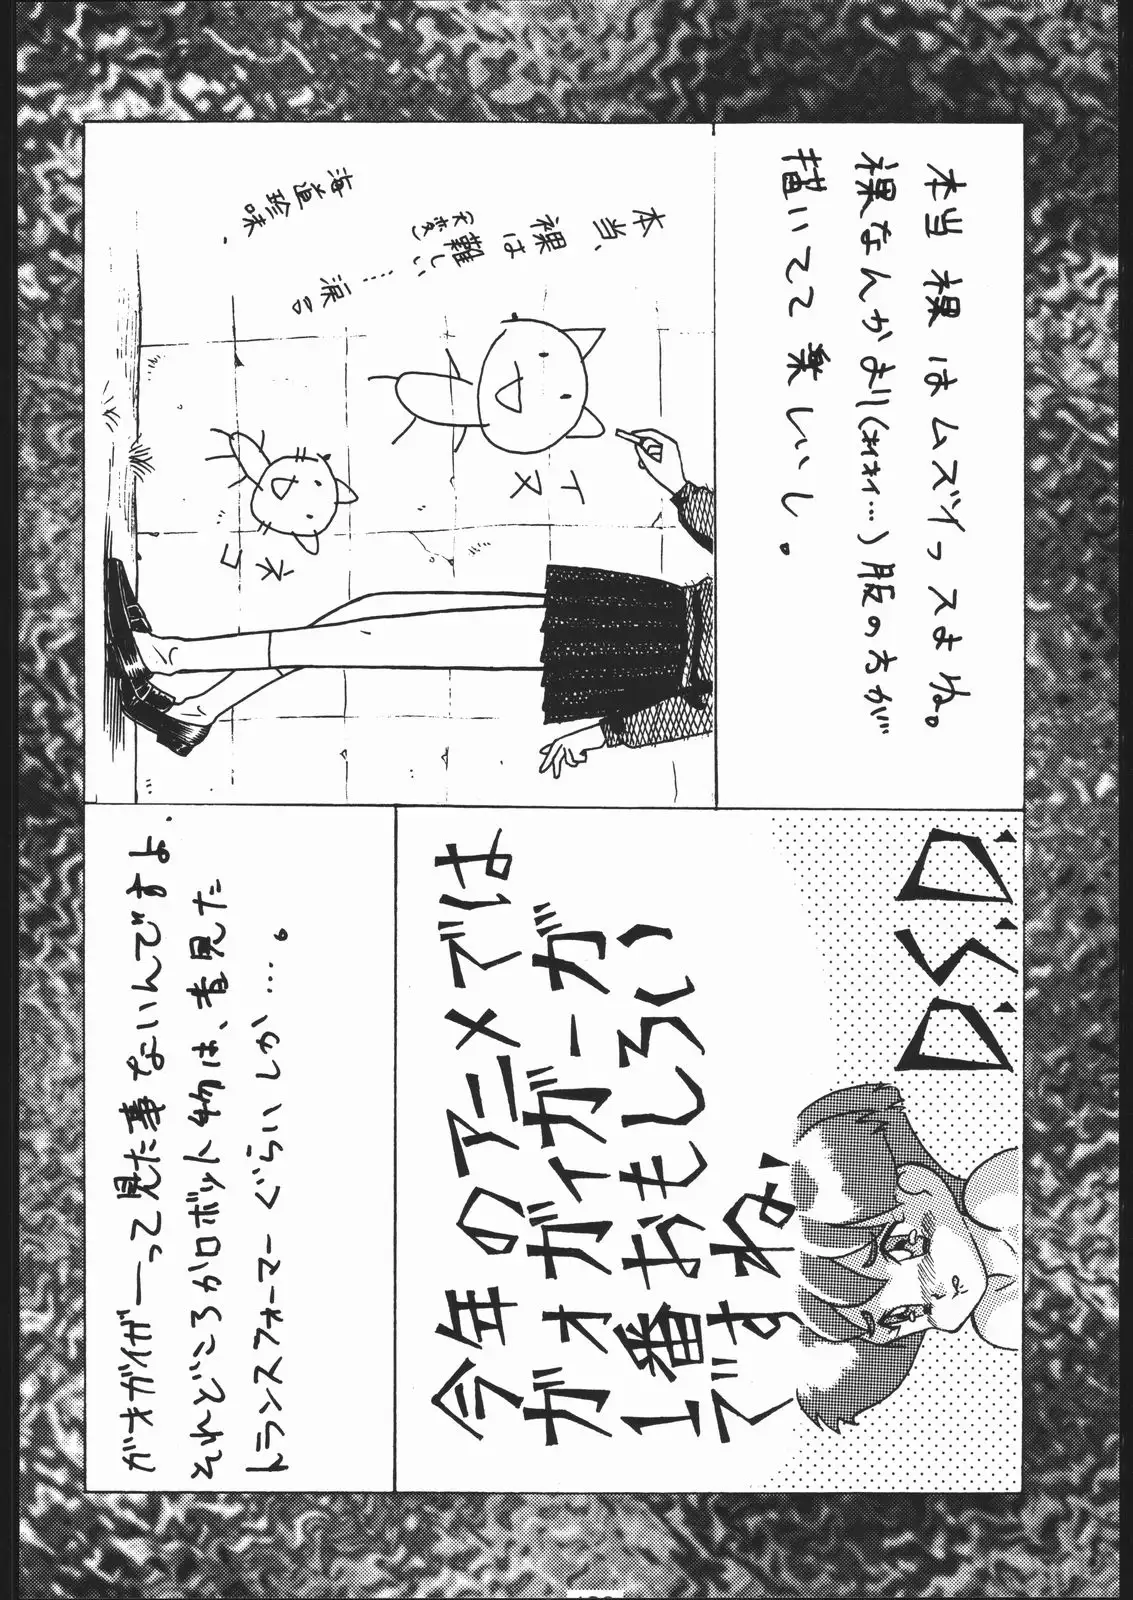 本当裸はムズイっスよね。
裸なんかより(オイオイ…)服の方が
描いてて楽しいし。
本当、
裸は
難しい……
涙
海道珍味.
イヌ
ネコ
D.S.D.
今年のアニメでは
ガオガイガーが
1番おもしろい
ですね
ガオガイガーって見た事ないんですよ.
それどころかロボット物は、昔見た
トランスフォーマーぐらいしか…。